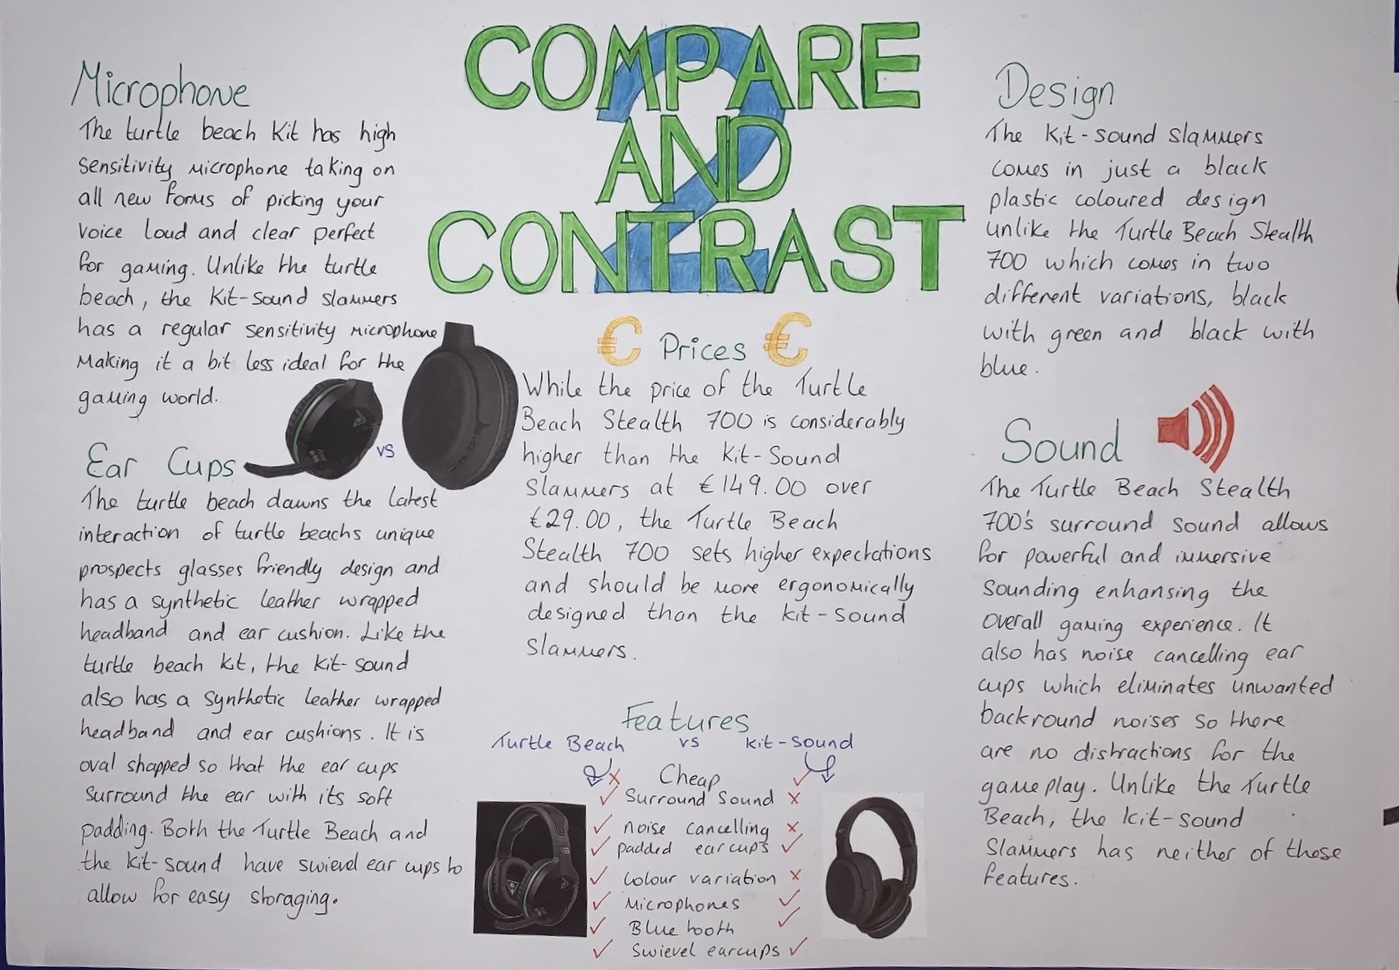 COMPARE
2
AND
CONTRAST
Microphone
The turtle beach Kit has high
sensitivity microphone taking on
all new forms of picking your
voice loud and clear perfect
for gaming. Unlike the turtle
beach, the Kit-Sound slammers
has a regular sensitivity microphone
Making it a bit less ideal for the
gaming world.
VS
Ear Cups
The turtle beach dawns the latest
interaction of turtle beachs unique
prospects glasses friendly design and
has a synthetic leather wrapped
headband and ear cushion. Like the
turtle beach kit, the kit-sound
also has a synthetic leather wrapped
headband and ear cushions. It is
oval shapped so that the ear cups
surround the ear with its soft
padding. Both the Turtle Beach and
the Kit-sound have swievel ear cups to
allow for easy storaging.
€ Prices €
While the price of the Turtle
Beach Stealth 700 is considerably
higher than the Kit-Sound
Slammers at €149.00 over
€29.00, the Turtle Beach
Stealth 700 sets higher expectations
and should be more ergonomically
designed than the kit-Sound
Slammers.
Features
Turtle Beach vs kit-Sound
x Cheap ✓
✓ Surround Sound x
✓ noise cancelling x
✓ padded earcups ✓
✓ Colour variation x
✓ Microphones ✓
✓ Blue tooth ✓
✓ Swievel earcups ✓
Design
The Kit-sound slammers
comes in just a black
plastic coloured design
unlike the Turtle Beach Stealth
700 which comes in two
different variations, black
with green and black with
blue.
Sound
The Turtle Beach Stealth
700's surround sound allows
for powerful and immersive
sounding enhansing the
overall gaming experience. It
also has noise cancelling ear
cups which eliminates unwanted
backround noises so there
are no distractions for the
gameplay. Unlike the Turtle
Beach, the kit-sound
Slammers has neither of these
features.